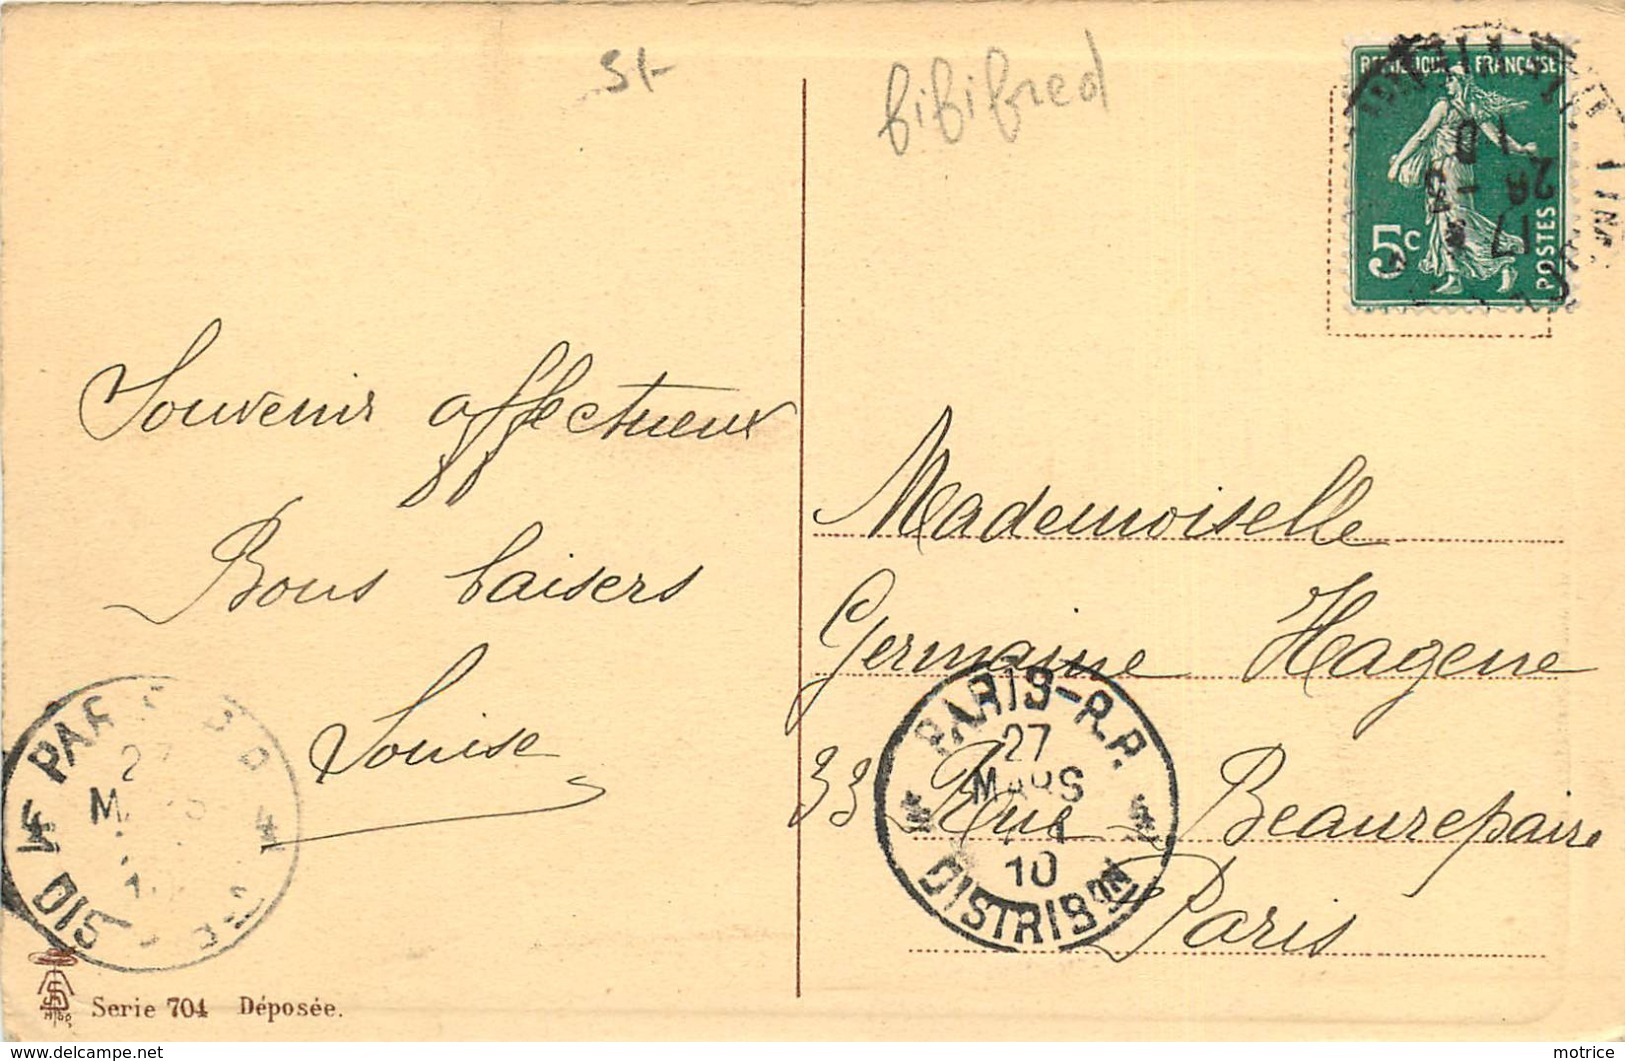 51-
bibifred
REPUBLIQUE FRANÇAISE
5c
POSTES
17
26
10
Souvenir affectueux
Bons baisers
Louise
Mademoiselle
Germaine Hagene
33 Rue Beaurepaire
Paris
PARIS-R.P.
27
MARS
10
DISTRIBON
PARIS
27
DIS
Serie 704 Déposée.
www.delcampe.net
motrice